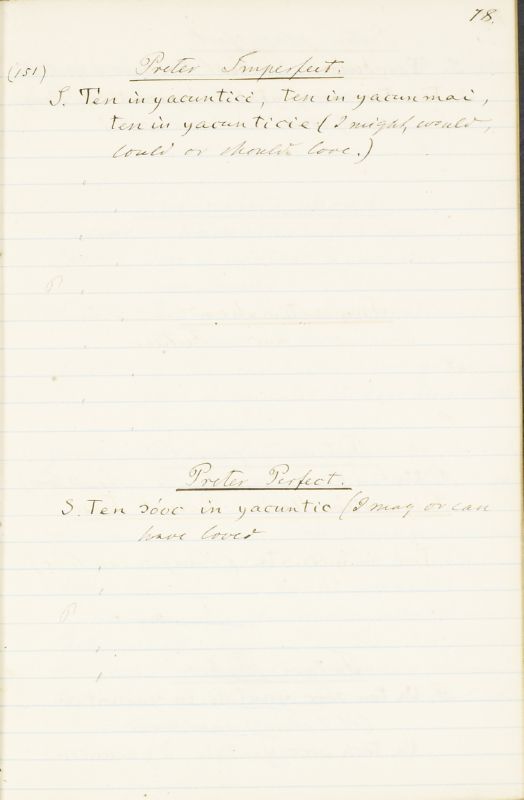 78.
(151) Preter Imperfect.
S. Ten in yacuntici, ten in yacunmai,
ten in yacunticie (I might, would,
could or should love.)
P
Preter Perfect.
S. Ten ɔóoc in yacuntic (I may or can
have loved
P